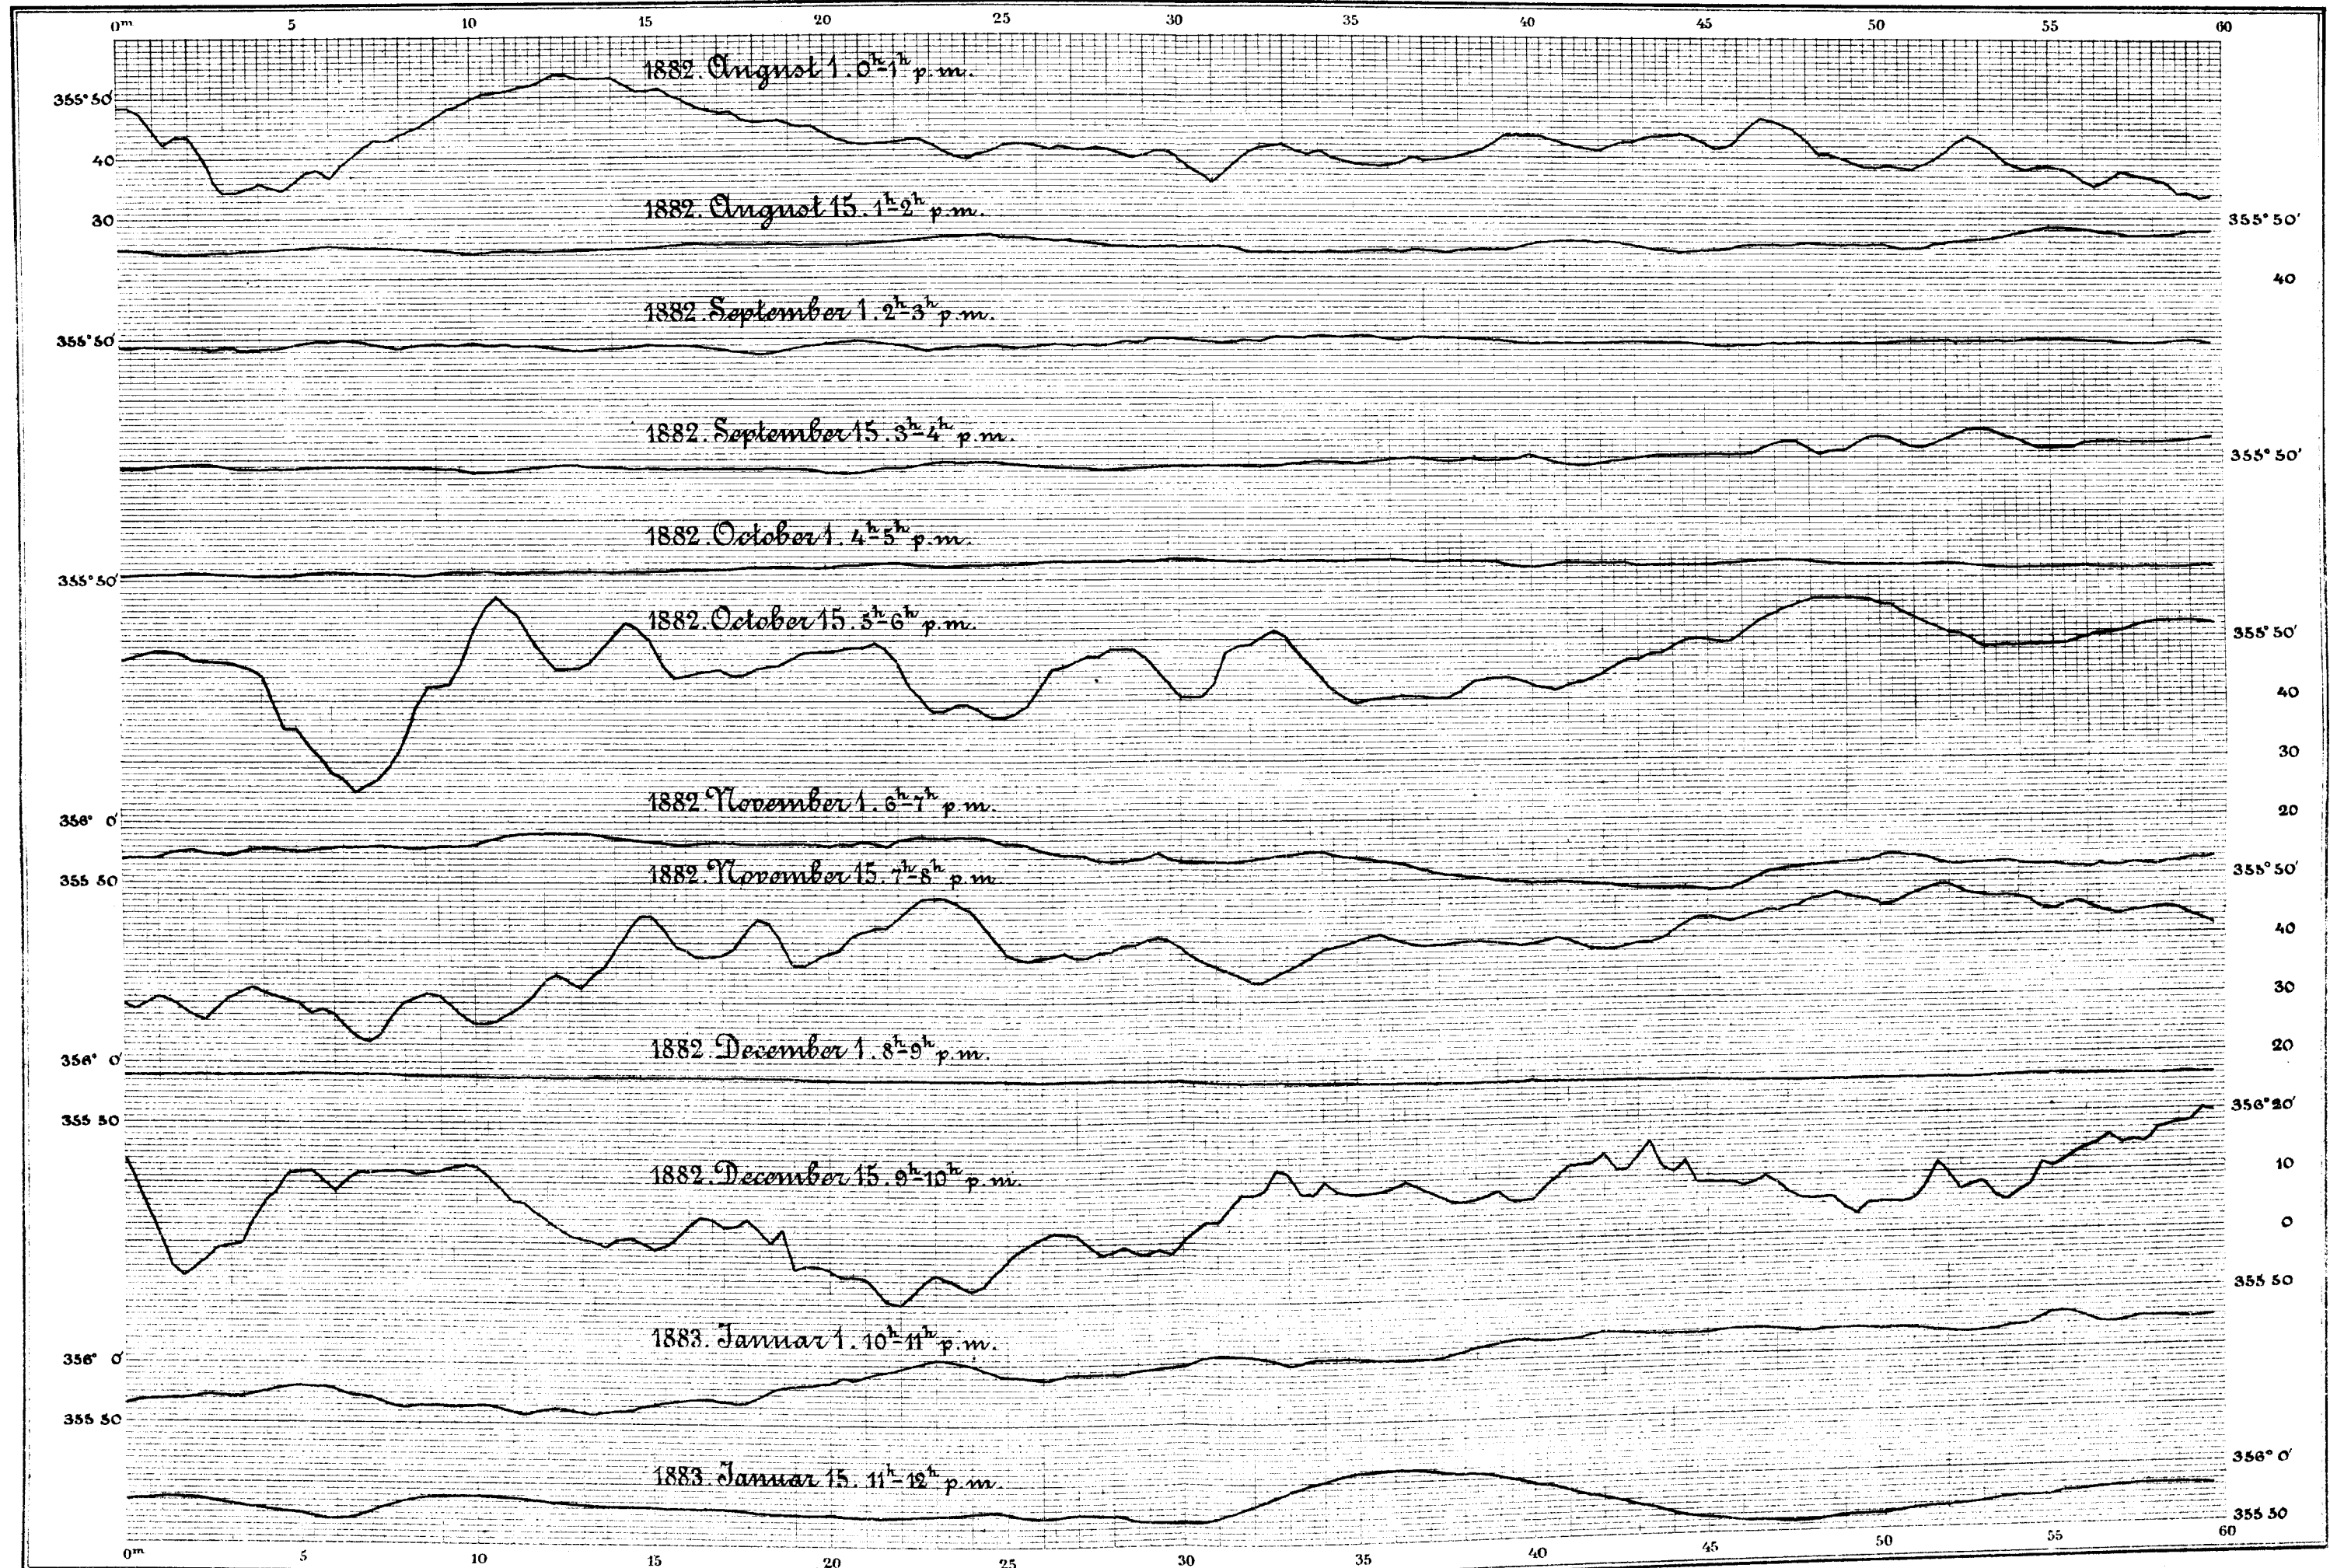 0ᵐ 5 10 15 20 25 30 35 40 45 50 55 60
1882. August 1. 0ʰ-1ʰ p.m.
355° 50'
40
1882. August 15. 1ʰ-2ʰ p.m.
30
355° 50'
40
1882. September 1. 2ʰ-3ʰ p.m.
355° 50'
1882. September 15. 3ʰ-4ʰ p.m.
355° 50'
1882. October 1. 4ʰ-5ʰ p.m.
355° 50'
1882. October 15. 5ʰ-6ʰ p.m.
355° 50'
40
30
1882. November 1. 6ʰ-7ʰ p.m.
20
356° 0'
1882. November 15. 7ʰ-8ʰ p.m.
355 50
355° 50'
40
30
1882. December 1. 8ʰ-9ʰ p.m.
20
356° 0'
355 50
356° 20'
10
1882. December 15. 9ʰ-10ʰ p.m.
0
355 50
1883. Januar 1. 10ʰ-11ʰ p.m.
356° 0'
355 50
356° 0'
1883. Januar 15. 11ʰ-12ʰ p.m.
355 50
0ᵐ 5 10 15 20 25 30 35 40 45 50 55 60